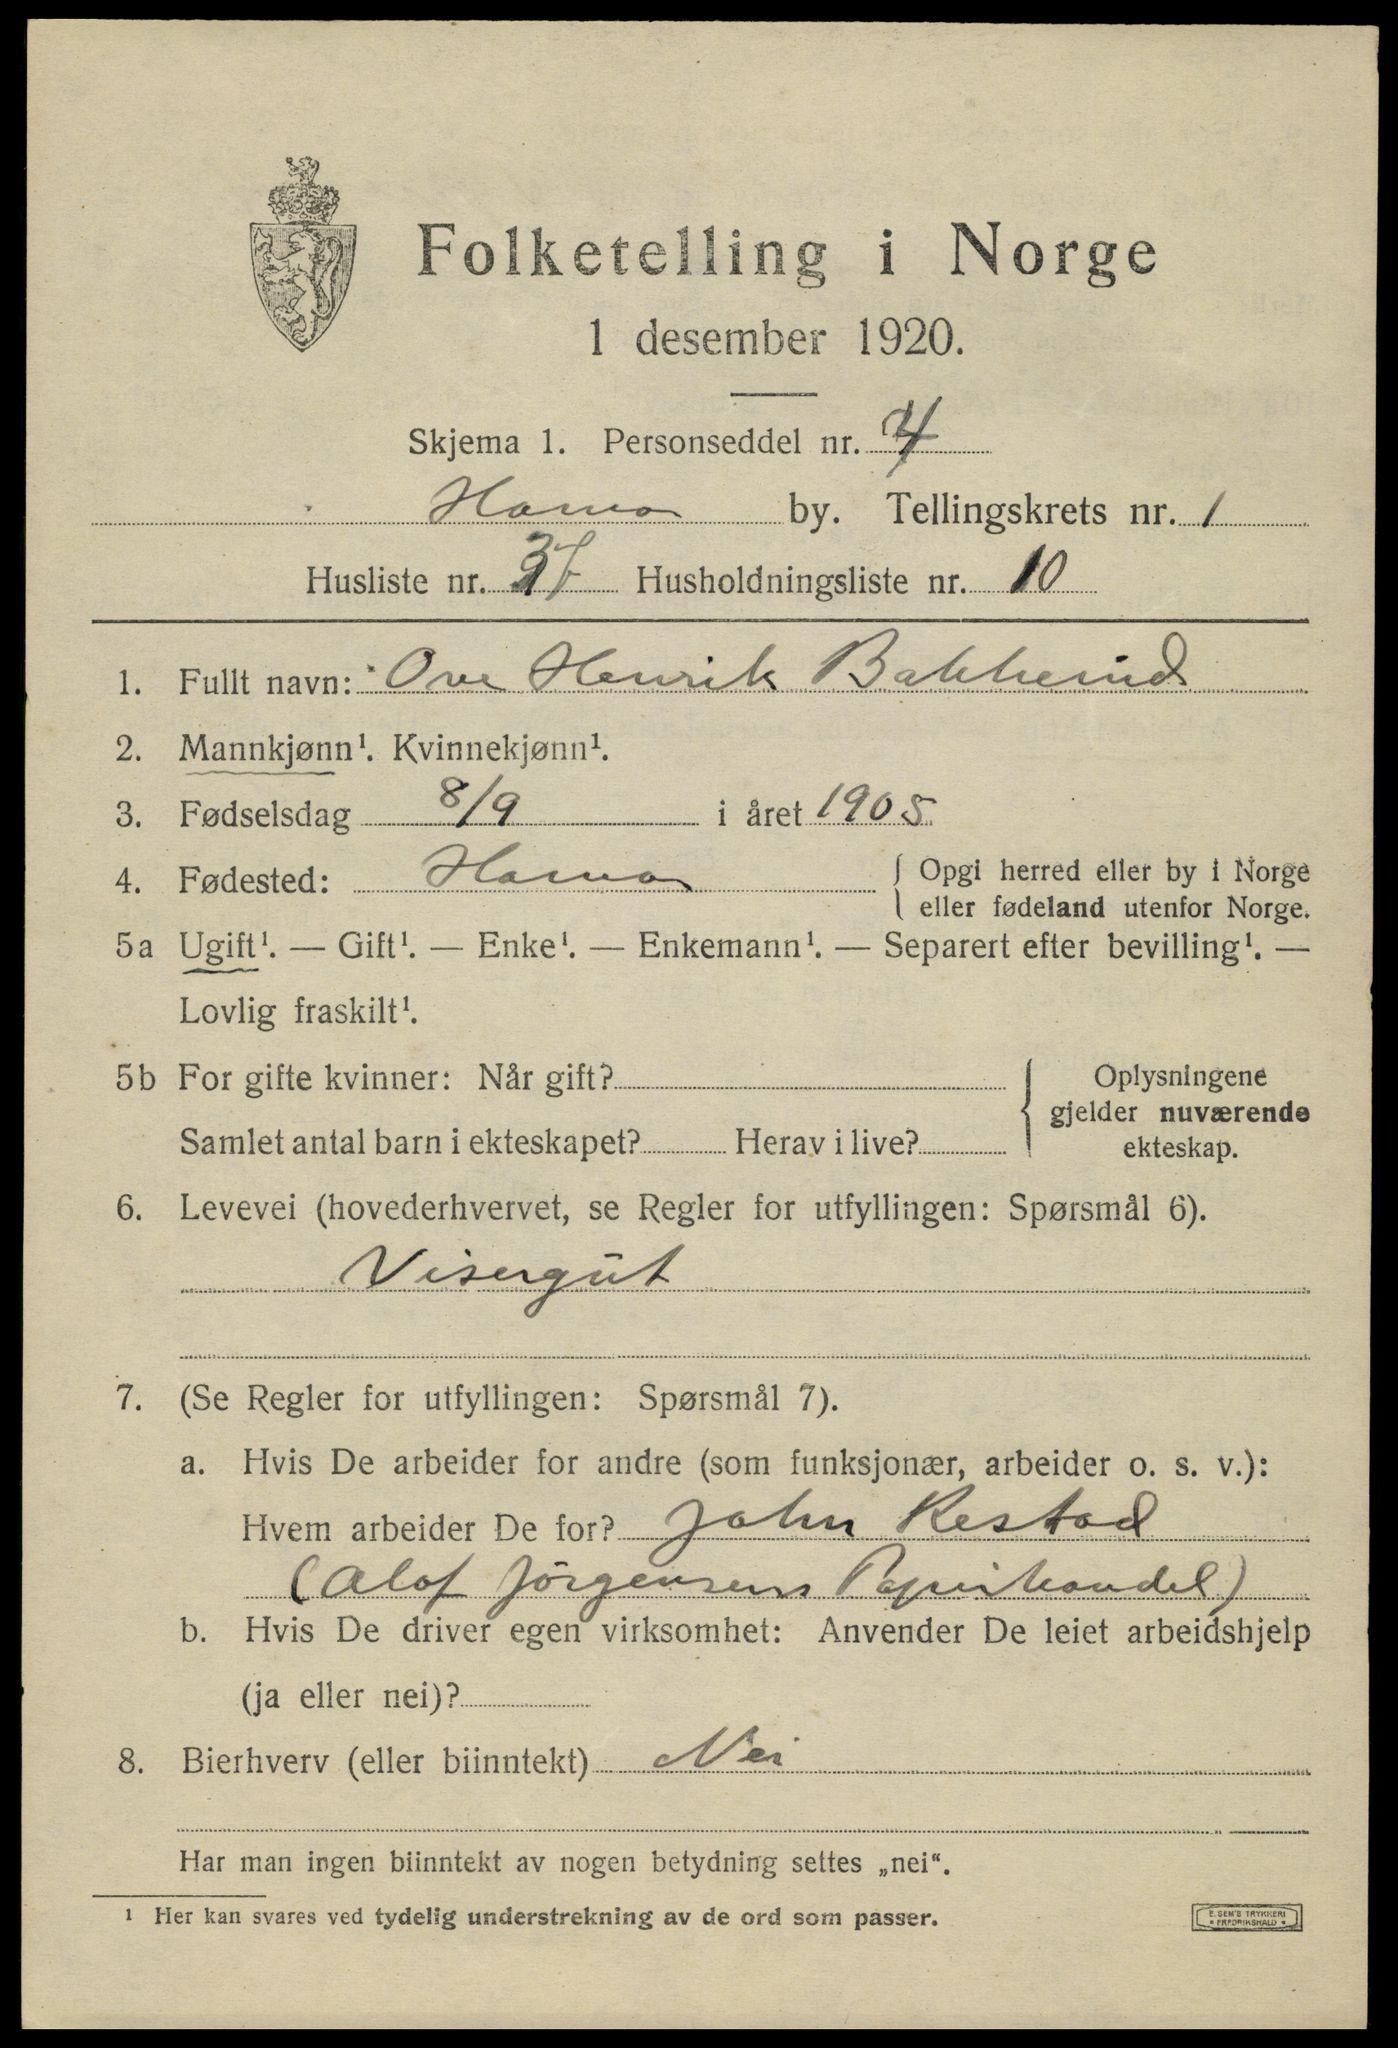 Folketelling i Norge
1 desember 1920.
Skjema 1. Personseddel nr. 4
Hamar by. Tellingskrets nr. 1
Husliste nr. 37 Husholdningsliste nr. 10
1. Fullt navn: Ove Henrik Bakkerud
2. Mannkjønn¹. Kvinnekjønn¹.
3. Fødselsdag 8/9 i året 1905
4. Fødested: Hamar { Opgi herred eller by i Norge
eller fødeland utenfor Norge.
5a Ugift¹. — Gift¹. — Enke¹. — Enkemann¹. — Separert efter bevilling¹. —
Lovlig fraskilt¹.
5b For gifte kvinner: Når gift? { Oplysningene
gjelder nuværende
Samlet antal barn i ekteskapet? Herav i live? ekteskap.
6. Levevei (hovederhvervet, se Regler for utfyllingen: Spørsmål 6).
Visergut
7. (Se Regler for utfyllingen: Spørsmål 7).
a. Hvis De arbeider for andre (som funksjonær, arbeider o. s. v.):
Hvem arbeider De for? John Restad
(Olaf Jörgensens Papirhandel)
b. Hvis De driver egen virksomhet: Anvender De leiet arbeidshjelp
(ja eller nei)?
8. Bierhverv (eller biinntekt) Nei
Har man ingen biinntekt av nogen betydning settes „nei“.
¹ Her kan svares ved tydelig understrekning av de ord som passer.
E. SEM'S TRYKKERI
• FREDRIKSHALD •